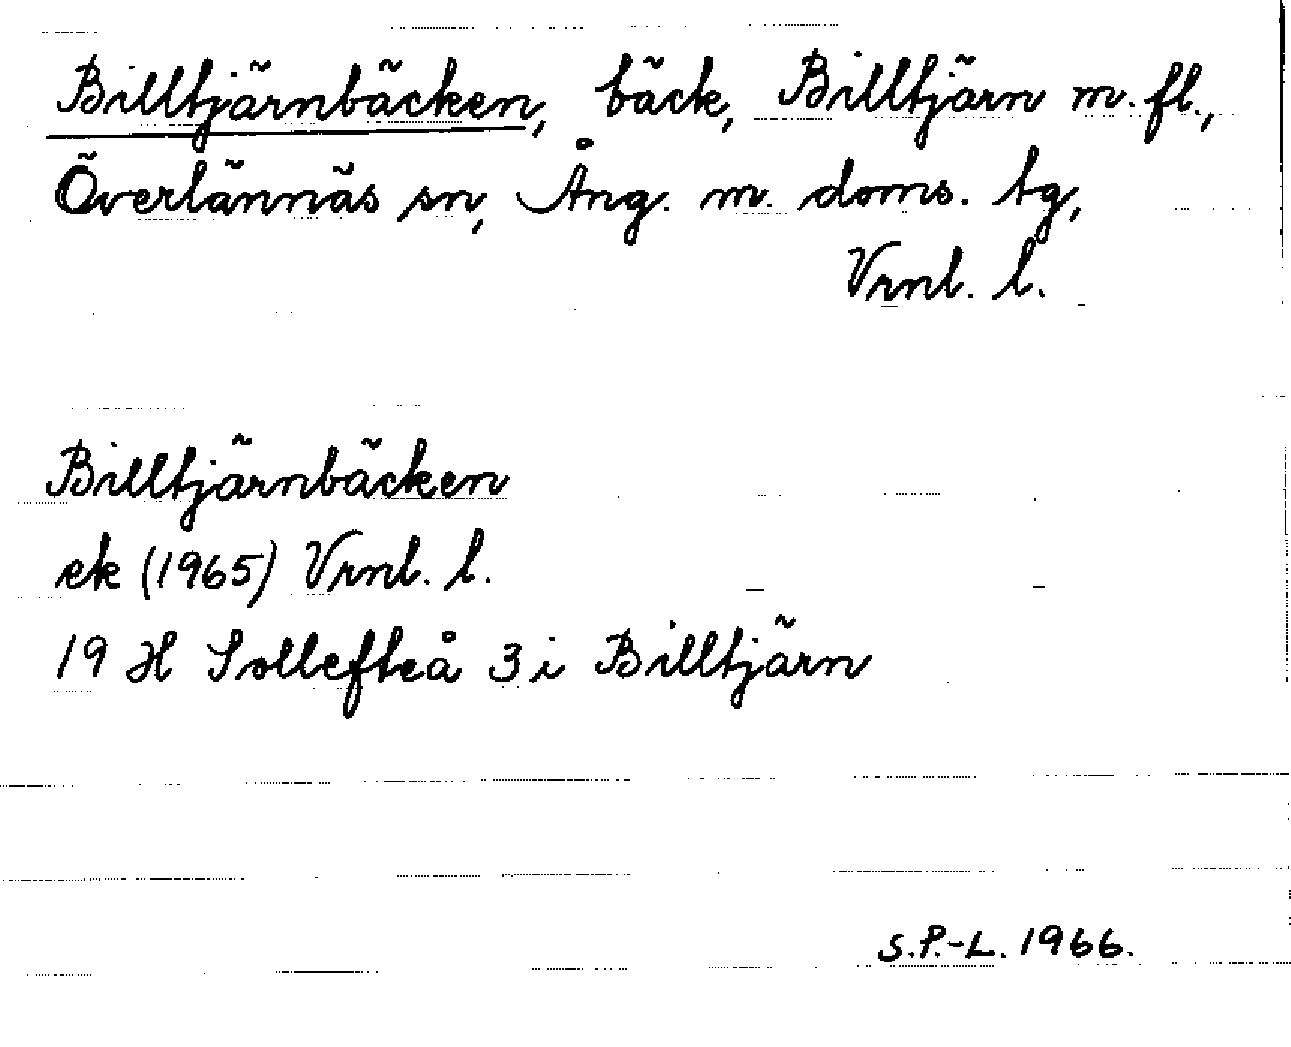 Billtjärnbäcken, bäck, Billtjärn m.fl.,
Överlännäs sn, Ång. m. doms. tg,
Vrnl. l.
Billtjärnbäcken
ek (1965) Vrnl. l.
19 H Sollefteå 3 i Billtjärn
S.P.-L. 1966.